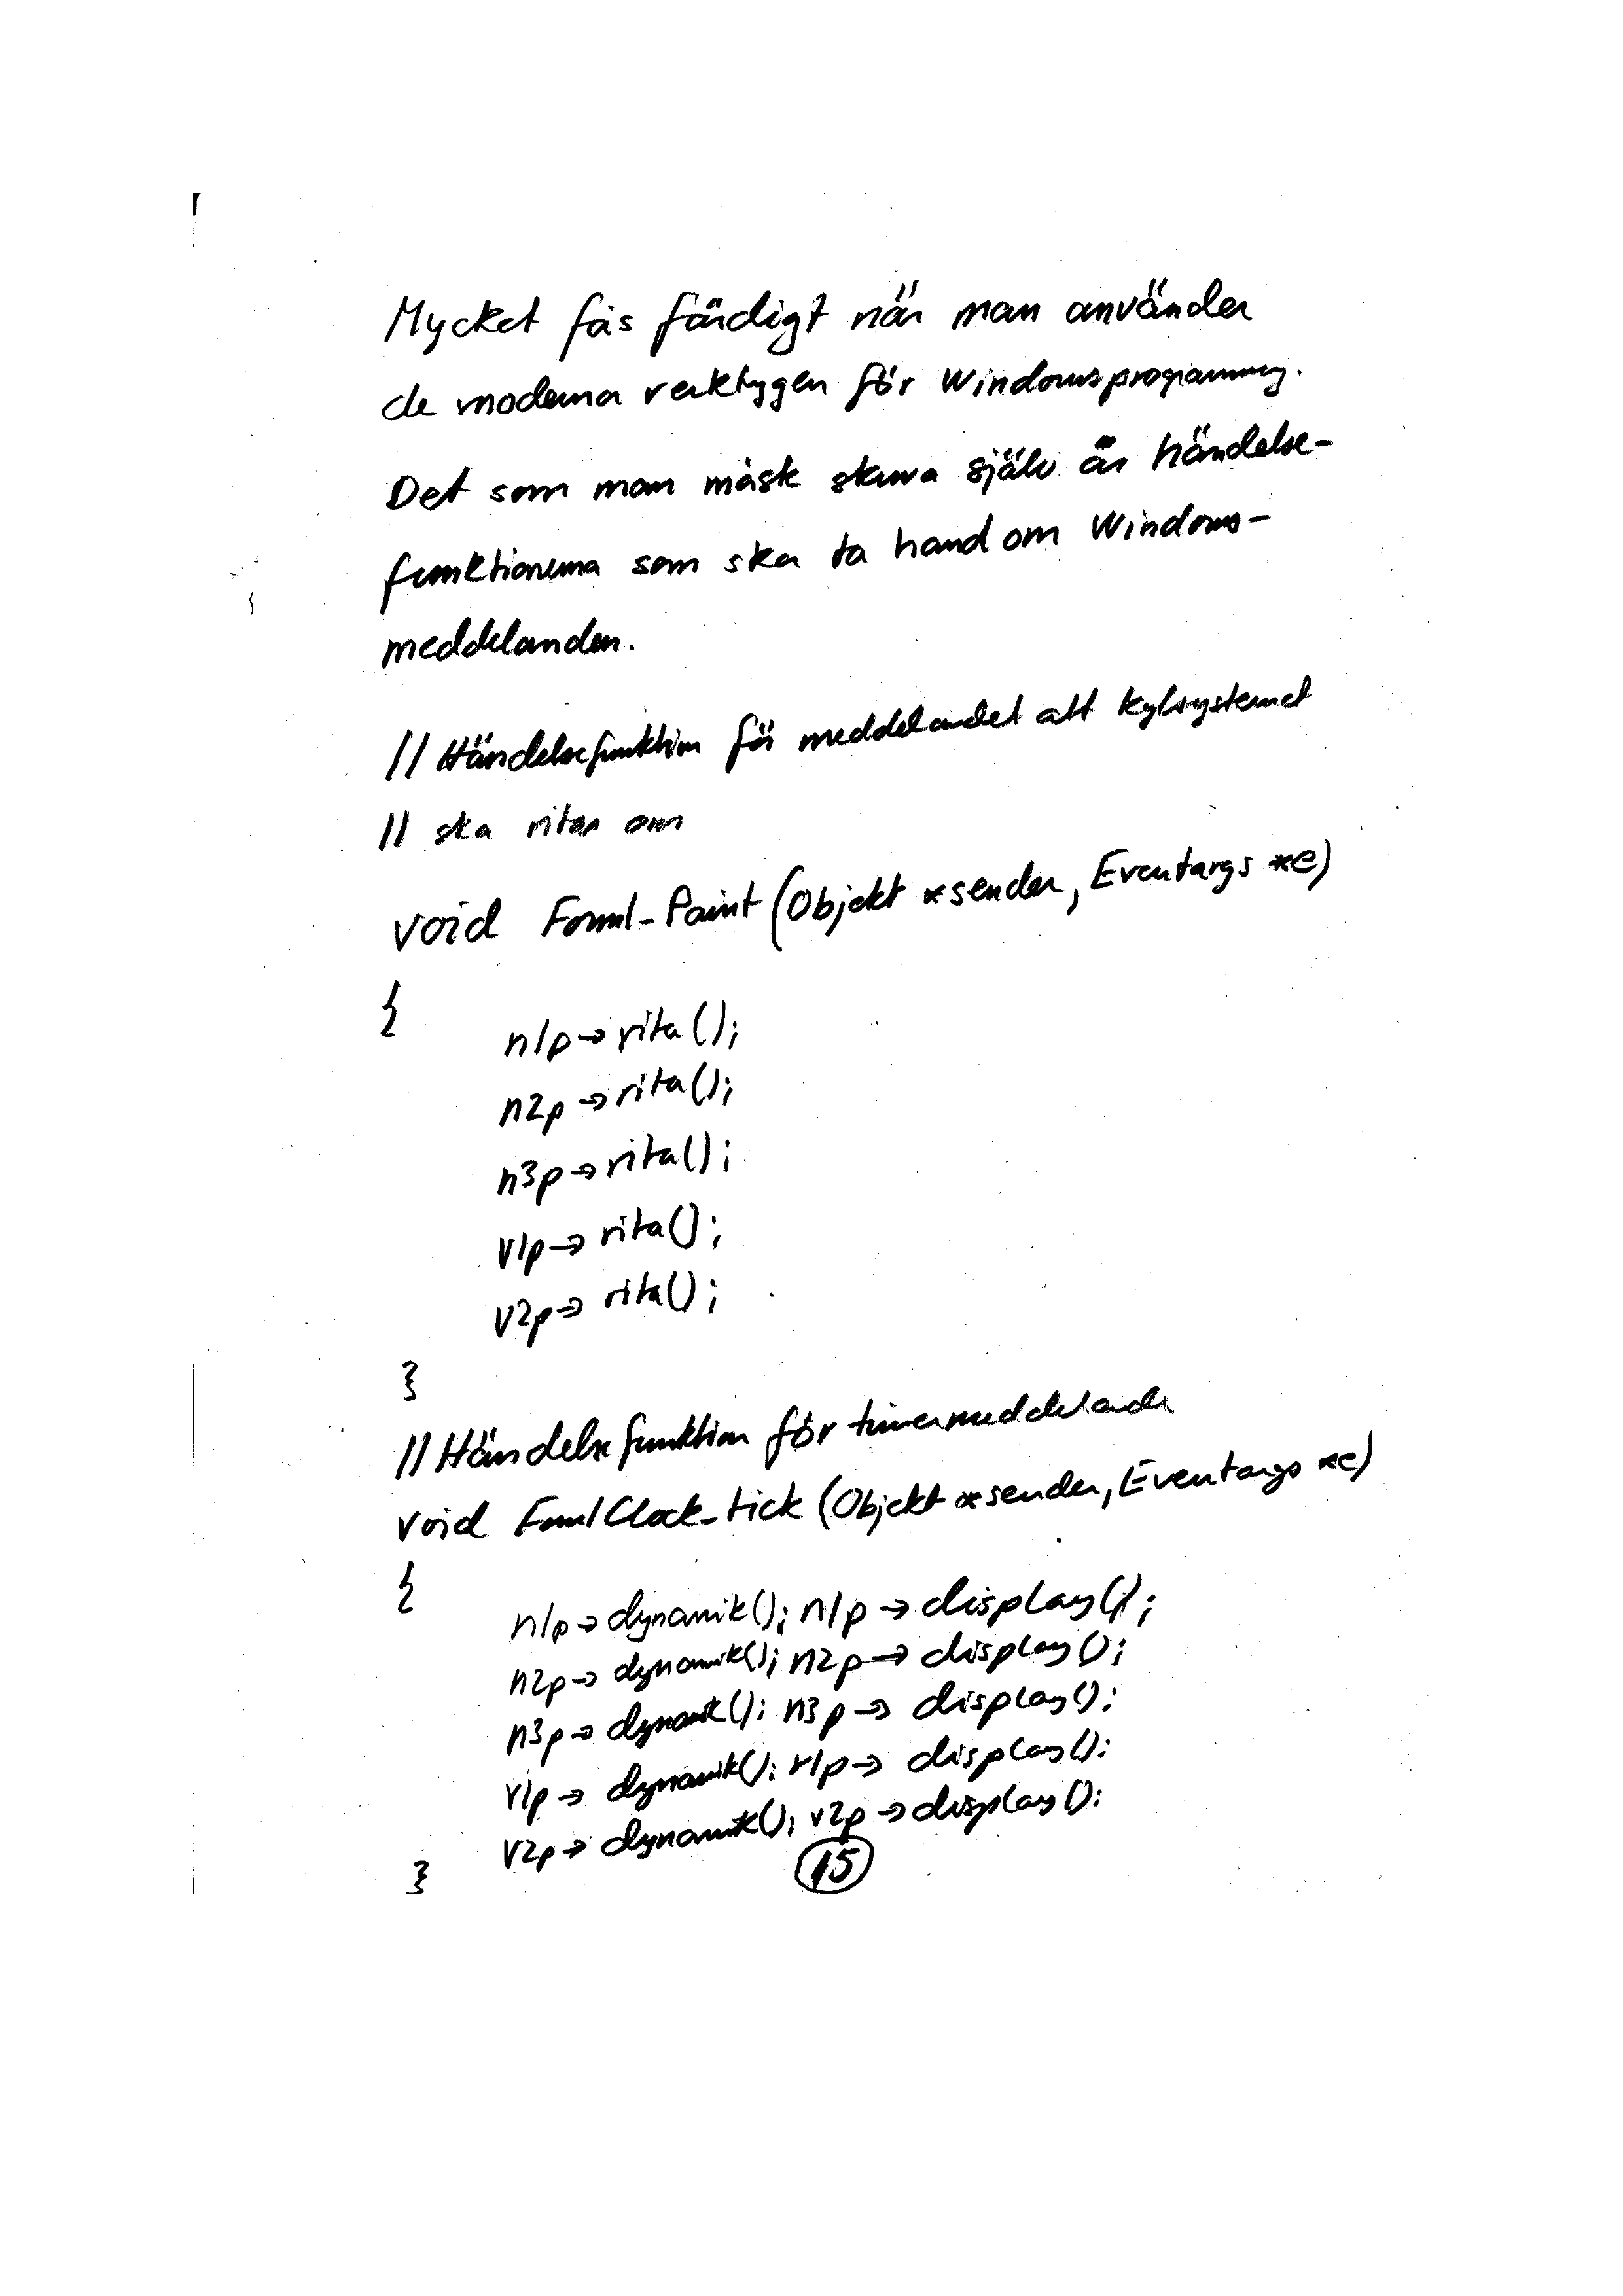 Mycket fås färdigt när man använder
de moderna verktygen för Windowsprogrammering.
Det som man måste skriva själv är händelse-
funktionerna som ska ta hand om Windows-
meddelanden.
// Händelsefunktion för meddelandet att kylsystemet
// ska ritas om
void Form1_Paint (Objekt *sender, Eventargs *e)
{
n1p→rita();
n2p→rita();
n3p→rita();
v1p→rita();
v2p→rita();
}
// Händelsefunktion för timermeddelande
void Form1Clock_tick (Objekt *sender, Eventargs *e)
{
n1p→dynamik(); n1p→display();
n2p→dynamik(); n2p→display();
n3p→dynamik(); n3p→display();
v1p→dynamik(); v1p→display();
v2p→dynamik(); v2p→display();
}
15